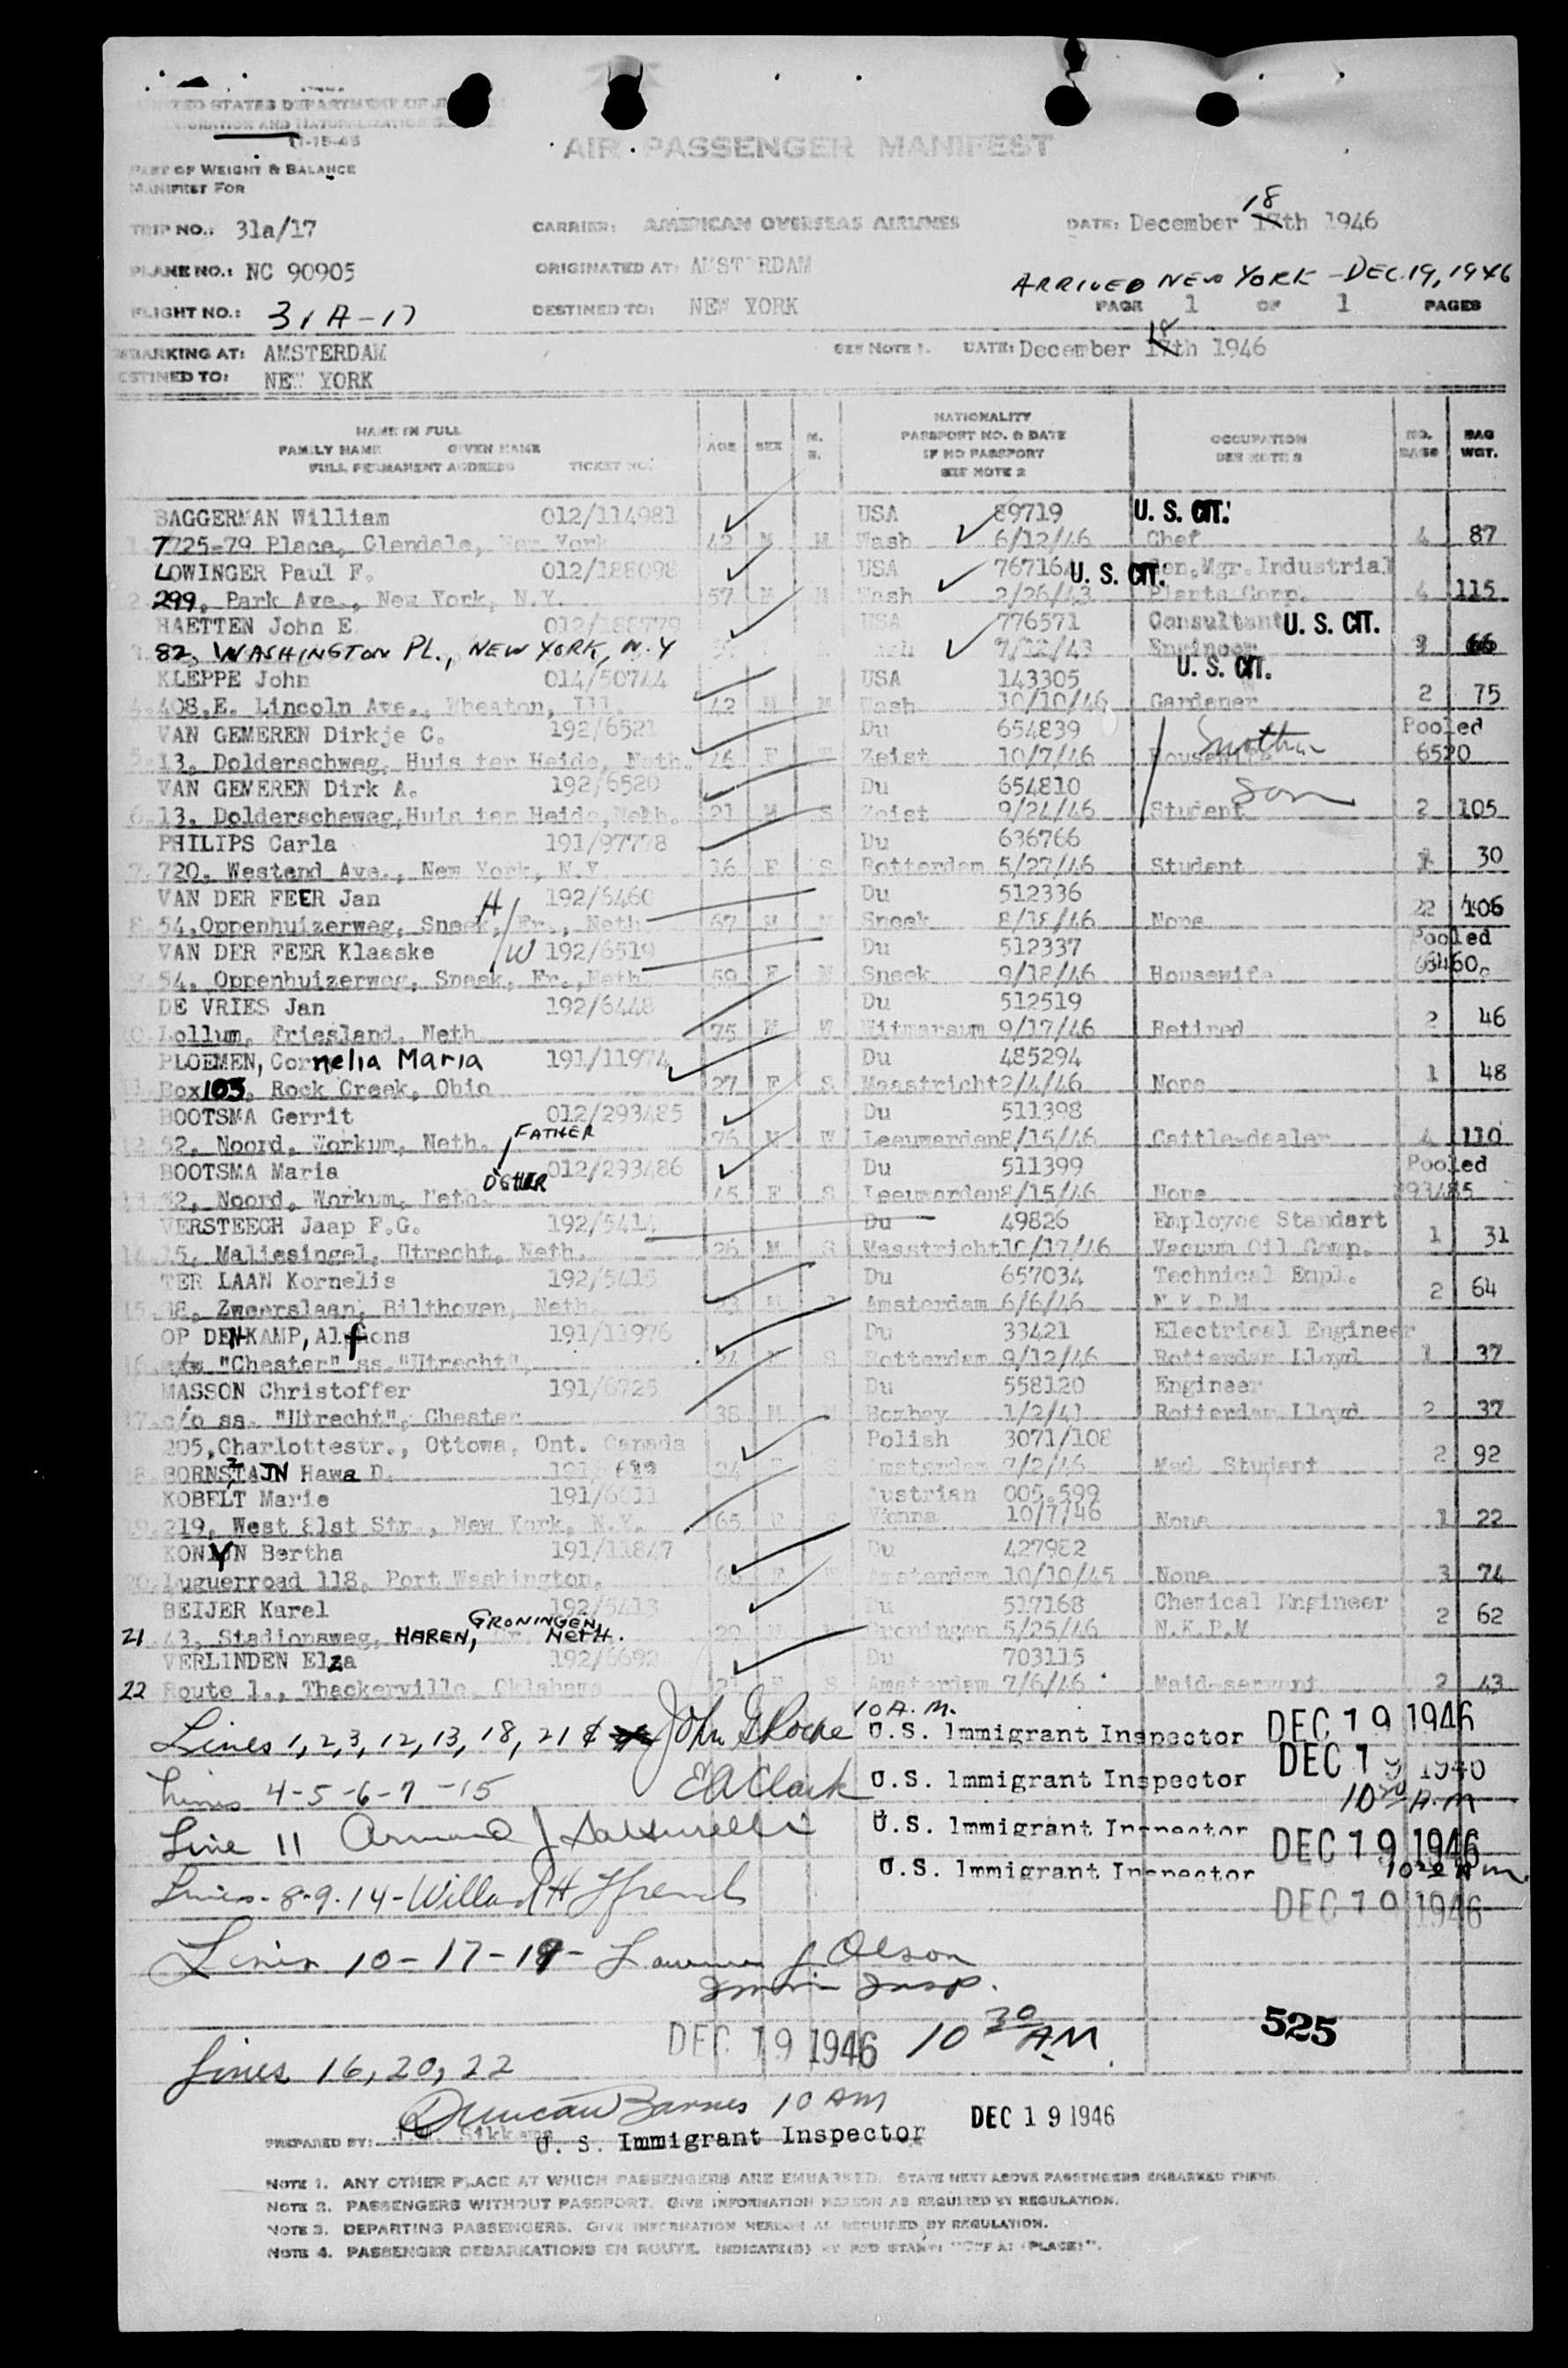 UNITED STATES DEPARTMENT OF
IMMIGRATION AND NATURALIZATION
11-15-45
AIR PASSENGER MANIFEST
PART OF WEIGHT & BALANCE
MANIFEST FOR
TRIP NO.: 31a/17 CARRIER: AMERICAN OVERSEAS AIRLINES DATE: December 17th 18 1946
PLANE NO.: NC 90905 ORIGINATED AT: AMSTERDAM
ARRIVED NEW YORK - DEC. 19, 1946
FLIGHT NO.: 31A-17 DESTINED TO: NEW YORK PAGE 1 OF 1 PAGES
EMBARKING AT: AMSTERDAM SEE NOTE 1. DATE: December 17th 18 1946
DESTINED TO: NEW YORK
NAME IN FULL
FAMILY NAME GIVEN NAME
FULL PERMANENT ADDRESS TICKET NO. AGE SEX M. S. NATIONALITY PASSPORT NO. & DATE IF NO PASSPORT SEE NOTE 2 OCCUPATION SEE NOTE 3 NO. BAGS BAG WGT.
BAGGERMAN William 012/114981 USA 89719 U. S. CIT.
1. 7725-79 Place, Glendale, New York 42 M M Wash 6/12/46 Chef 4 87
LOWINGER Paul F. 012/188098 USA 76716 U. S. CIT. Gen. Mgr. Industrial
2. 299, Park Ave., New York, N.Y. 57 M M Wash 2/26/43 Plants Corp. 4 115
HAETTEN John E 012/188779 USA 776571 Consultant U. S. CIT.
3. 82, WASHINGTON PL., NEW YORK, N.Y 7/12/43 Engineer 66
KLEPPE John 014/50744 USA 143305 U. S. CIT.
4. 408, E. Lincoln Ave., Wheaton, Ill. 42 M M Wash 10/10/46 Gardener 2 75
VAN GEMEREN Dirkje C. 192/6521 Du 654839 mother Pooled
5. 13, Dolderschweg, Huis ter Heide, Neth. 46 F W Zeist 10/7/46 Housewife 6520
VAN GEMEREN Dirk A. 192/6520 Du 654810 Son
6. 13, Dolderscheweg, Huis ter Heide, Neth. 21 M S Zeist 9/24/46 Student 2 105
PHILIPS Carla 191/97778 Du 636766
7. 720, Westend Ave., New York, N.Y. 16 F S Rotterdam 5/27/46 Student 1 30
VAN DER FEER Jan H 192/6460 Du 512336
8. 54, Oppenhuizerweg, Sneek, Fr., Neth 67 M M Sneek 8/18/46 None 22 106
VAN DER FEER Klaaske W 192/6519 Du 512337 Pooled
9. 54, Oppenhuizerweg, Sneek, Fr., Neth. 59 F M Sneek 9/18/46 Housewife 6460
DE VRIES Jan 192/6448 Du 512519
10. Lollum, Friesland, Neth. 75 M W Witmarsum 9/17/46 Retired 2 46
PLOEMEN, Cornelia Maria 191/11974 Du 485294
11. Box 103, Rock Creek, Ohio 27 F S Maastricht 2/4/46 None 1 48
BOOTSMA Gerrit 012/293485 Du 511398
12. 52, Noord, Workum, Neth. FATHER 76 M W Leeuwarden 8/15/46 Cattle-dealer 4 110
BOOTSMA Maria D'GHTER 012/293486 Du 511399 Pooled
13. 52, Noord, Workum, Neth. 45 F S Leeuwarden 8/15/46 None 293485
VERSTEECH Jaap F.G. 192/5414 Du 49826 Employee Standart
14. 15, Maliesingel, Utrecht, Neth. 26 M S Maastricht 10/17/46 Vacuum Oil Comp. 1 31
TER LAAN Kornelis 192/5415 Du 657034 Technical Empl.
15. 18, Zweerslaan, Bilthoven, Neth. 23 M Amsterdam 6/6/46 N.K.P.M 2 64
OP DEN KAMP, Alfons 191/11976 Du 33421 Electrical Engineer
16. c/o "Chester" ss. "Utrecht", 24 M S Rotterdam 9/12/46 Rotterdam Lloyd 1 37
MASSON Christoffer 191/6725 Du 558120 Engineer
17. c/o ss. "Utrecht", Chester 38 M M Bombay 1/2/41 Rotterdam Lloyd 2 37
205, Charlottestr., Ottowa, Ont. Canada Polish 3071/108
18. BORNSZTAJN Hawa D. 24 F S Amsterdam 7/2/46 Med. Student 2 92
KOBELT Marie 191/6611 Austrian 005.599
19. 219, West 81st Str., New York, N.Y. 65 F Vienna 10/7/46 None 1 22
KONYN Bertha 191/11847 Du 427982
20. Luguerroad 118, Port Washington, 66 F Amsterdam 10/10/45 None 3 74
BEIJER Karel 192/5413 Du 517168 Chemical Engineer
21 43, Stadionsweg, HAREN, GRONINGEN, NETH. 29 Groningen 5/25/46 N.K.P.M 2 62
VERLINDEN Elza 192/6692 Du 703115
22 Route 1., Thackerville, Oklahama 21 F S Amsterdam 7/6/46 Maid-servant 2 43
Lines 1, 2, 3, 12, 13, 18, 21 & John G Roche 10 A.M. U.S. Immigrant Inspector DEC 19 1946
Lines 4-5-6-7-15 E A Clark U.S. Immigrant Inspector DEC 19 1946
10 30 A.M
Line 11 U.S. Immigrant Inspector DEC 19 1946
U.S. Immigrant Inspector 10 20 A m.
Lines - 8-9-14 - Willard H French DEC 19 1946
Lines 10-17-19- J Olson
Imm Insp.
DEC 19 1946 10 30 AM 525
Lines 16, 20, 22
Duncan Barnes 10 AM DEC 19 1946
PREPARED BY: Sikkema U. S. Immigrant Inspector
NOTE 1. ANY OTHER PLACE AT WHICH PASSENGERS ARE EMBARKED. STATE NEXT ABOVE PASSENGERS EMBARKED THERE.
NOTE 2. PASSENGERS WITHOUT PASSPORT. GIVE INFORMATION HEREON AS REQUIRED BY REGULATION.
NOTE 3. DEPARTING PASSENGERS. GIVE INFORMATION HEREON AS REQUIRED BY REGULATION.
NOTE 4. PASSENGER DEBARKATIONS EN ROUTE. INDICATE(D) BY RED STAMP "OFF AT (PLACE)".